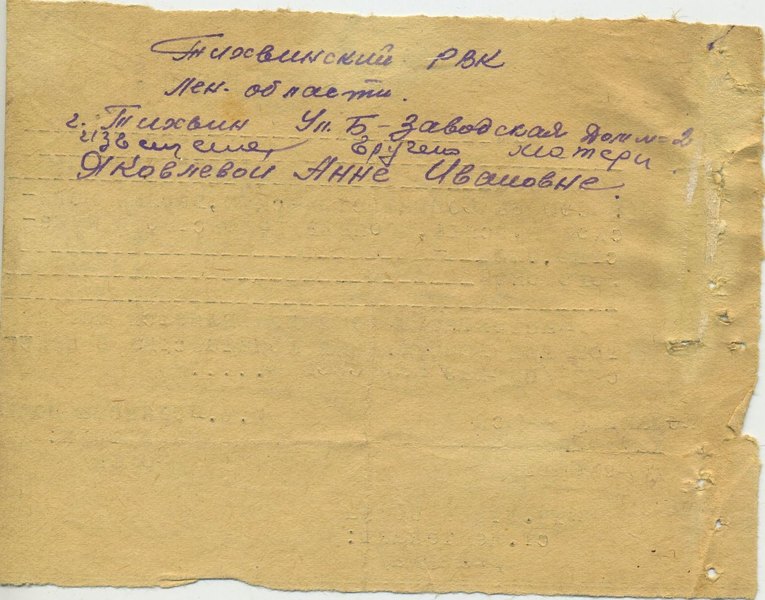 Тихвинский РВК
Лен. области.
г. Тихвин Ул. Б-Заводская Дом №-2
Извещение вручено матери
Яковлевой Анне Ивановне.